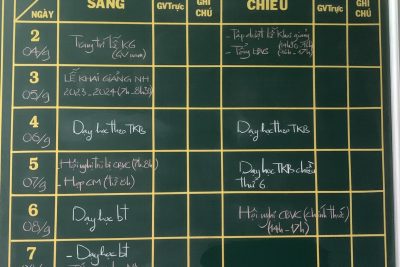 NGÀY SÁNG GVTrực GHI CHÚ CHIỀU GVTrực GHI CHÚ
2
04/9
Trang trí lễ KG
- Tập dượt lễ khai giảng
- Tổng
(14h - 17h)
3
05/9
LỄ KHAI GIẢNG NH
2023-2024 (7h-8h30)
4
06/9
Dạy học theo TKB
Dạy học theo TKB
5
07/9
- Hội nghị trù bị CBVC (7h-8h)
- Họp CM (từ 8h)
Dạy học TKB chiều
thứ 6
6
08/9
Dạy học bt
Hội nghị CBVC (chính thức)
(14h - 17h)
7
- Dạy học bt